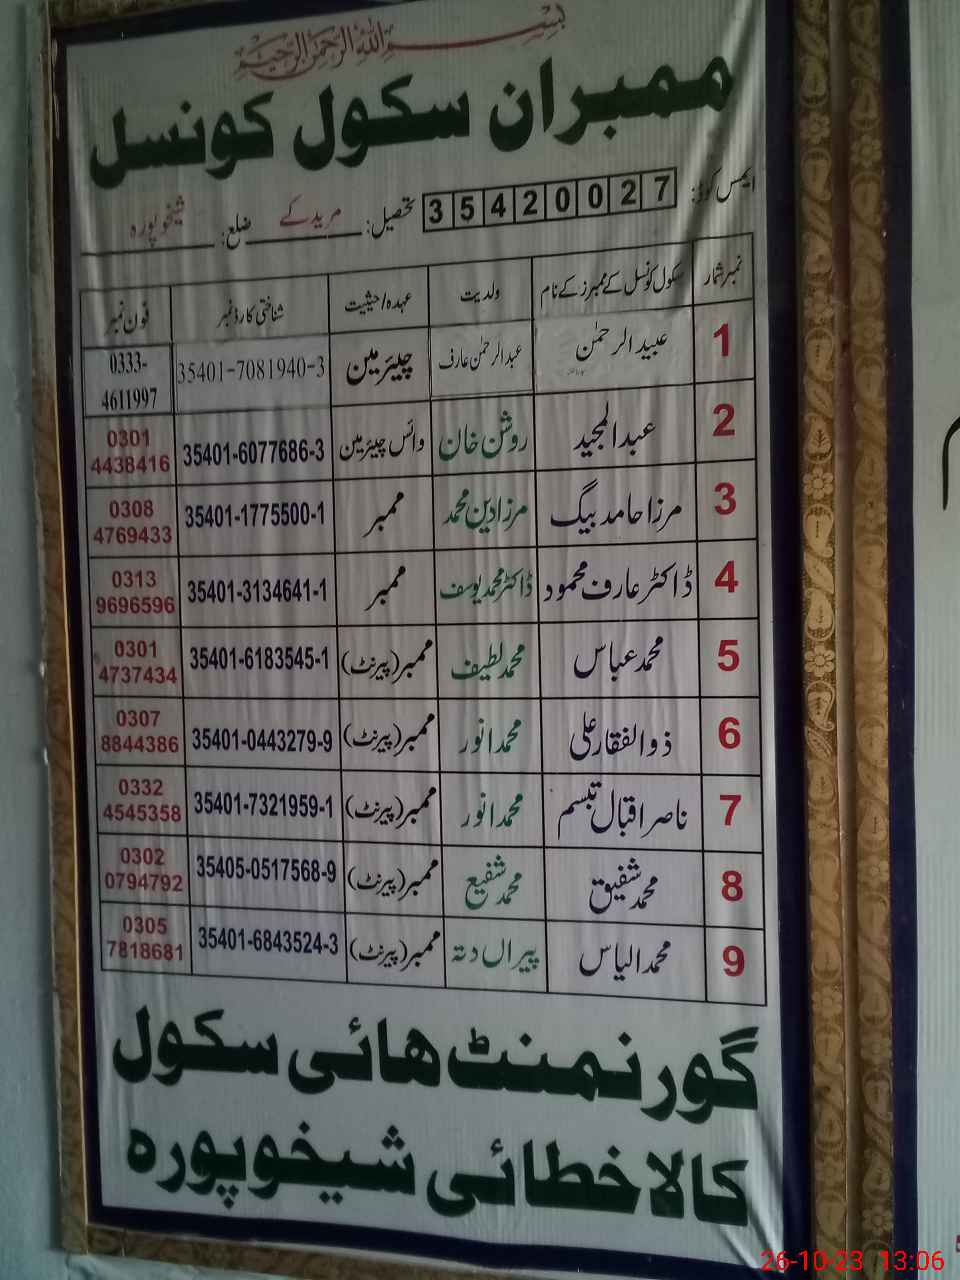 بِسْمِ اللهِ الرَّحْمٰنِ الرَّحِيْمِ
ممبران سکول کونسل
ایمس کوڈ: 35420027 تحصیل: مریدکے ضلع: شیخوپورہ
نمبر شمار سکول کونسل کے ممبرز کے نام ولدیت عہدہ/حیثیت شناختی کارڈ نمبر فون نمبر
1 عبید الرحمٰن عبدالرحمٰن عارف چیئرمین 35401-7081940-3 0333-4611997
2 عبدالمجید روشن خان وائس چیئرمین 35401-6077686-3 0301 4438416
3 مرزا حامد بیگ مرزا دین محمد ممبر 35401-1775500-1 0308 4769433
4 ڈاکٹر عارف محمود ڈاکٹر محمد یوسف ممبر 35401-3134641-1 0313 9696596
5 محمد عباس محمد لطیف ممبر (پیرنٹ) 35401-6183545-1 0301 4737434
6 ذوالفقار علی محمد انور ممبر (پیرنٹ) 35401-0443279-9 0307 8844386
7 ناصر اقبال تبسم محمد انور ممبر (پیرنٹ) 35401-7321959-1 0332 4545358
8 محمد شفیق محمد شفیع ممبر (پیرنٹ) 35405-0517568-9 0302 0794792
9 محمد الیاس پیراں دتہ ممبر (پیرنٹ) 35401-6843524-3 0305 7818681
گورنمنٹ ھائی سکول
کالا خطائی شیخوپورہ
26-10-23 13:06